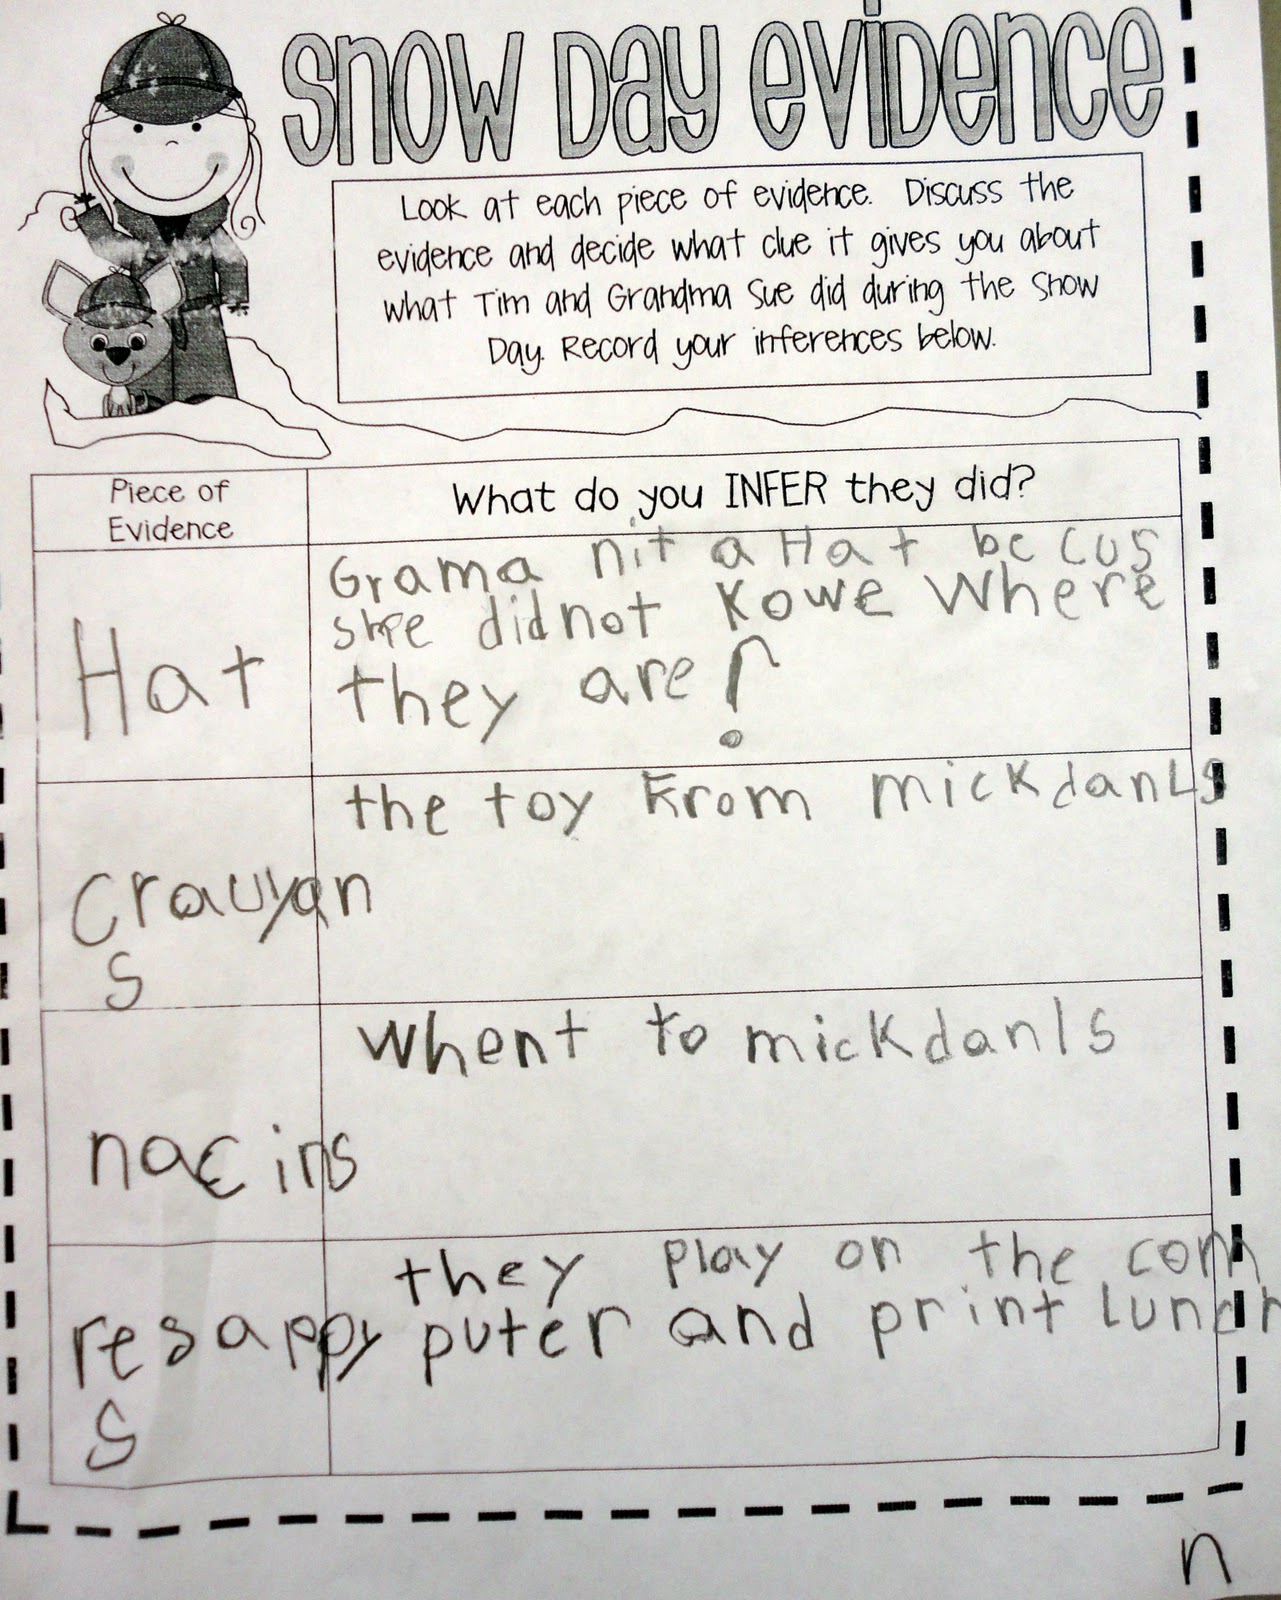 Snow Day Evidence
Look at each piece of evidence. Discuss the
evidence and decide what clue it gives you about
what Tim and Grandma Sue did during the Snow
Day. Record your inferences below.
Piece of
Evidence
What do you INFER they did?
Hat
Grama nit a Hat becus
shee didnot Kowe Where
they are?
Crauyan
s
the toy From mickdanLs
nacins
Whent to mickdanls
resappy
s
they play on the com
puter and print Lunch
n